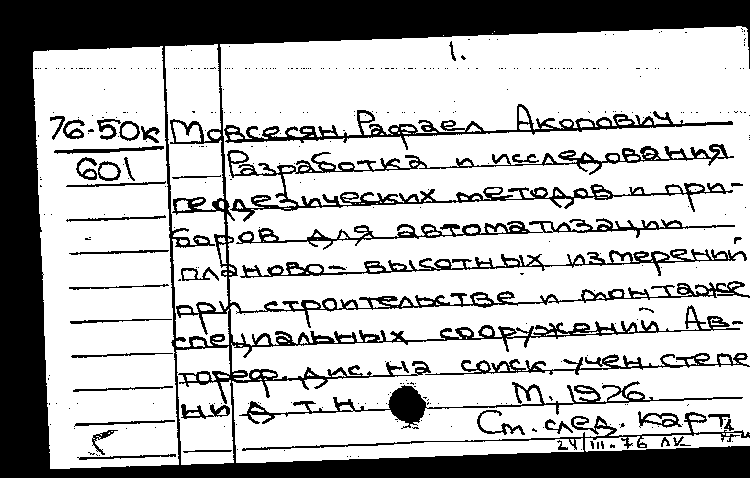 1.
76-50к Мовсесян, Рафаел Акопович.
601 Разработка и исследования
геодезических методов и при-
боров для автоматизации
планово- высотных измерений
при строительстве и монтаже
специальных сооружений. Ав-
тореф. дис. на соиск. учен. степе
ни д. т. н. М., 1976.
См. след. карт
24/III-76 ЛК